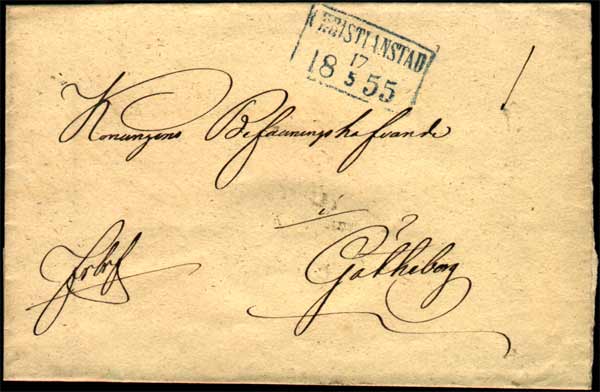 CHRISTIANSTAD
17
18 5 55
Konungens Befallningshafvande
i
Frbrf
Götheborg